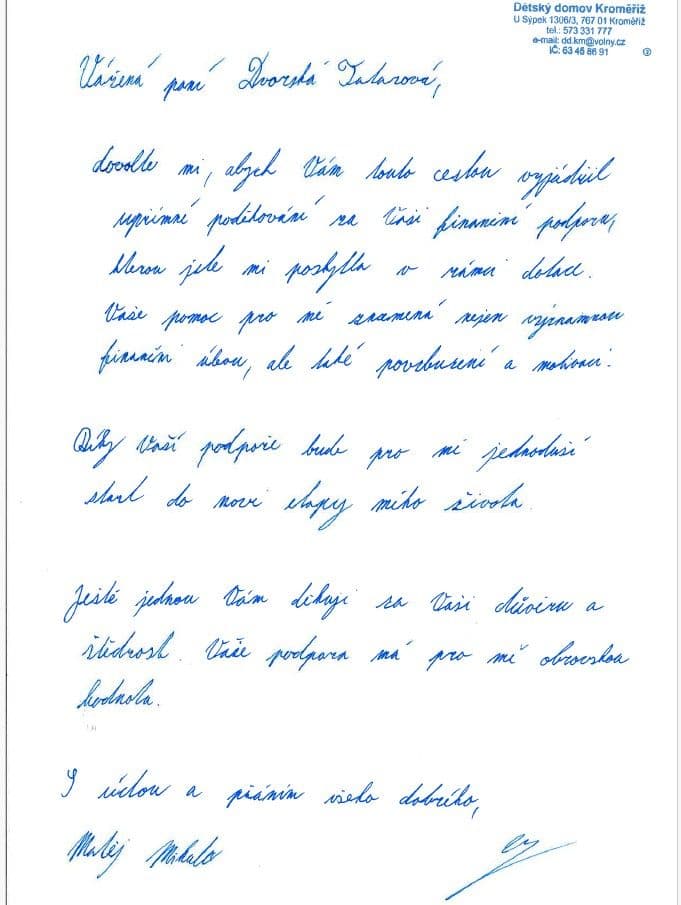 Dětský domov Kroměříž
U Sýpek 1306/3, 767 01 Kroměříž
tel.: 573 331 777
e-mail: dd.km@volny.cz
IČ: 63 45 86 91
Vážená paní Dvorská Tatarová,
dovolte mi, abych Vám touto cestou vyjádřil
upřímné poděkování za Vaši finanční podporu,
kterou jste mi poskytla v rámci dotace.
Vaše pomoc pro mě znamená nejen významnou
finanční úlevu, ale také povzbuzení a motivaci.
Díky Vaší podpoře bude pro mě jednodušší
start do nové etapy mého života.
Ještě jednou Vám děkuji za Vaši důvěru a
štědrost. Vaše podpora má pro mě obrovskou
hodnotu.
S úctou a přáním všeho dobrého,
Matěj